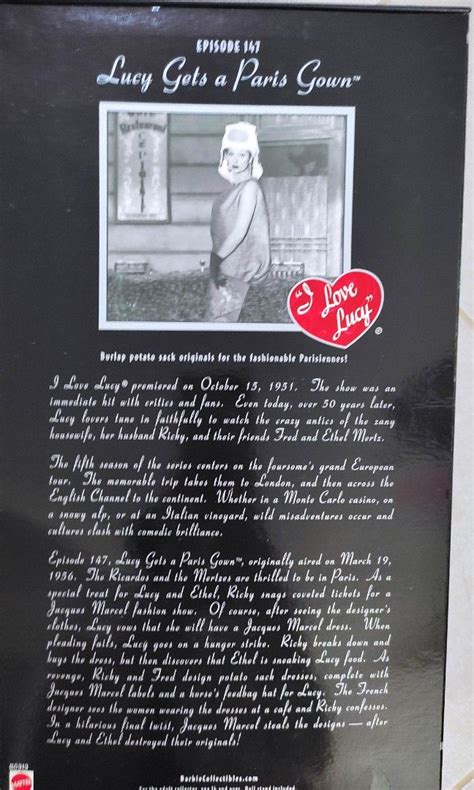 EPISODE 147
Lucy Gets a Paris Gown™
Restaurant
"I Love Lucy"®
Burlap potato sack originals for the fashionable Parisiennes!
I Love Lucy® premiered on October 15, 1951. The show was an
immediate hit with critics and fans. Even today, over 50 years later,
Lucy lovers tune in faithfully to watch the crazy antics of the zany
housewife, her husband Ricky, and their friends Fred and Ethel Mertz.
The fifth season of the series centers on the foursome's grand European
tour. The memorable trip takes them to London, and then across the
English Channel to the continent. Whether in a Monte Carlo casino, on
a snowy alp, or at an Italian vineyard, wild misadventures occur and
cultures clash with comedic brilliance.
Episode 147, Lucy Gets a Paris Gown™, originally aired on March 19,
1956. The Ricardos and the Mertzes are thrilled to be in Paris. As a
special treat for Lucy and Ethel, Ricky snags coveted tickets for a
Jacques Marcel fashion show. Of course, after seeing the designer's
clothes, Lucy vows that she will have a Jacques Marcel dress. When
pleading fails, Lucy goes on a hunger strike. Ricky breaks down and
buys the dress, but then discovers that Ethel is sneaking Lucy food. As
revenge, Ricky and Fred design potato sack dresses, complete with
Jacques Marcel labels and a horse's feedbag hat for Lucy. The French
designer sees the women wearing the dresses at a cafe and Ricky confesses.
In a hilarious final twist, Jacques Marcel steals the designs — after
Lucy and Ethel destroyed their originals!
BarbieCollectibles.com
For the adult collector, age 14 and over. Doll stand included.
MATTEL